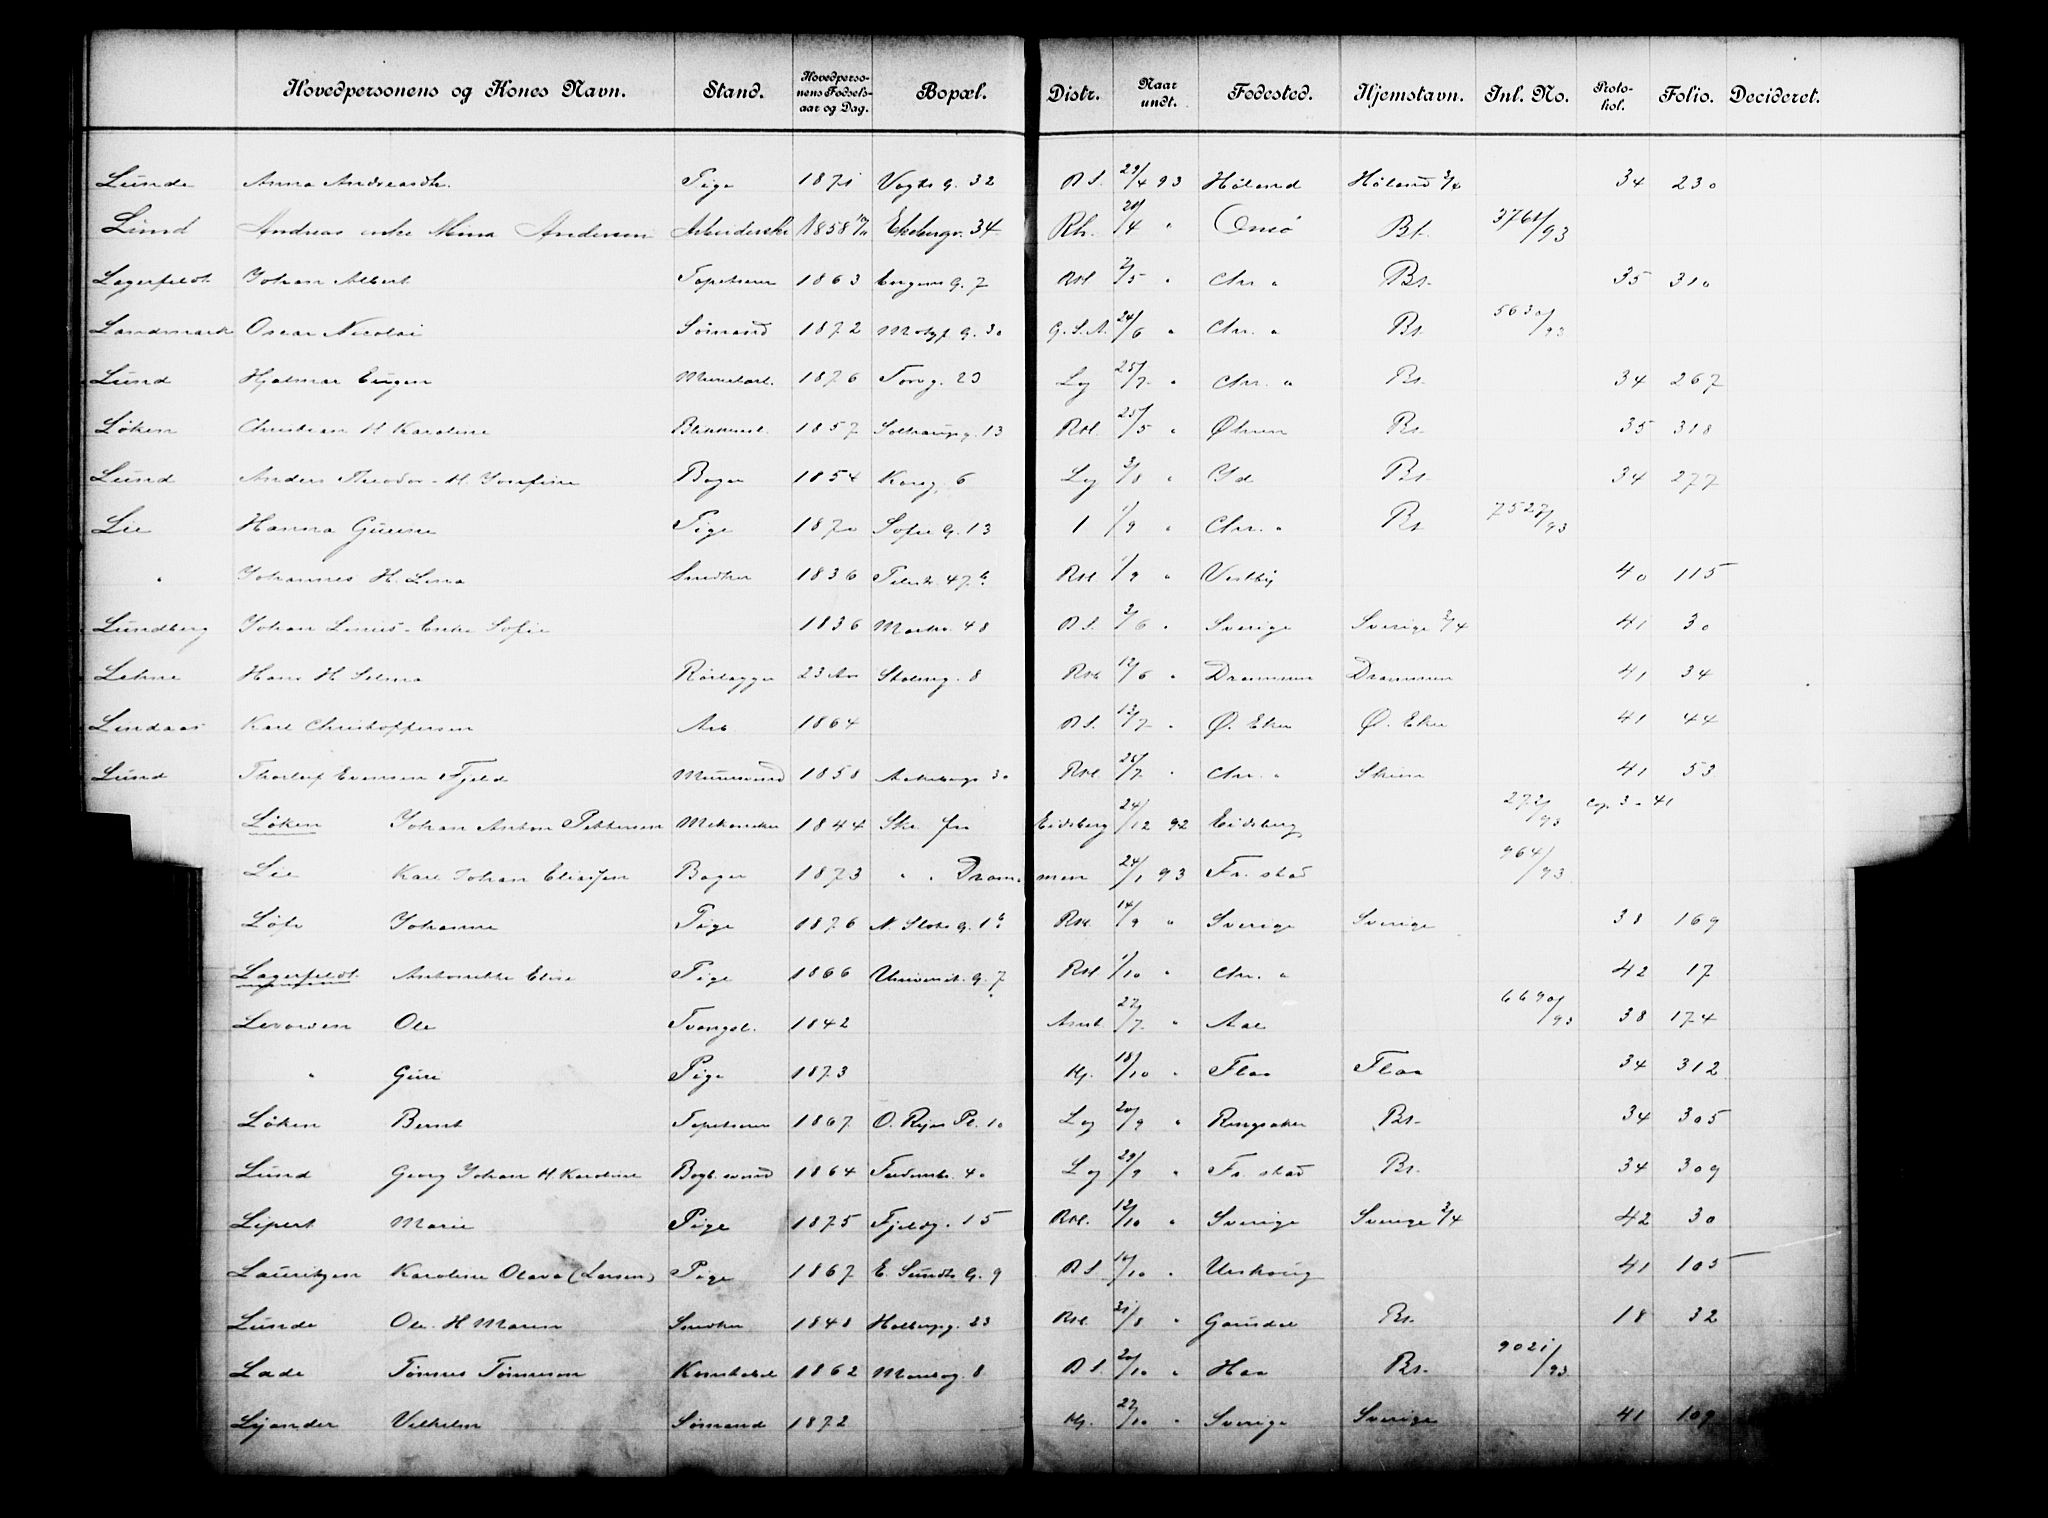 Hovedpersonens og Kones Navn. Stand. Hovedpersonens Fødselsaar og Dag. Bopæl. Distr. Naar undt. Fødested. Hjemstavn. Inl. No. Protokol. Folio. Decideret.
Lunde Anna Andreasdtr. Pige 1871 Vogts g. 32 B S. 29/4 93 Høland Høland 3/4 34 230
Lund Andreas enke Mina Andersen 1858 Ekebergv. 34 Rh. 28/4 " Onsø Bt. 3761/93
Lagerfeldt Johan Albert Tapetserer 1863 g. 7 RH. 2/5 " Chr. " Bt. 35 310
Landmark Oscar Nicolai Sømand 1872 g. 30 G.S.A. 24/6 " Chr. " Bt. 5630/93
Lund Hjalmar Eugen 1876 Torvg. 23 Lg 25/7 " Chr. " Bt. 34 267
Løken Christian H Karoline 1857 13 RH. 25/5 " Bt. 35 318
Lund Anders Theodor H. Josefine Bager 1854 Korsg. 6 Lg 3/8 " Id Bt. 34 277
Lie Hanna Pige 1870 Sofie G. 13 1 1/9 " Chr. " Bt. 7527/93
" Johannes H. Lina Snedker 1836 47 b RH. 1/9 " Vestby 40 115
Lundberg Johan Linus - Enke Sofie 1836 Markv. 48 B S. 3/6 " Sverige Sverige 3/4 41 30
Lehne Hans H Selma Rørlægger 23 Aar 8 RH 12/6 " Drammen Drammen 41 34
Lindaas Karl Christoffersen Arb 1864 B S. 13/7 " Ø. Eker Ø. Eker 41 44
Lund Thorleif Evensen Fjeld Murersvend 1858 30 RH. 28/7 " Chr. " Skien 41 53
Løken Johan Anton Pettersen Mekaniker 1844 Skr. fra Eidsberg 24/12 92 Eidsberg 272/93 Cop. 3 - 41
Lie Karl Johan Eliassen Bager 1873 " " Drammen 24/1 93 Fr. stad 964/93
Löfv Johanne Pige 1876 N. Slots g. 1 b RH. 14/9 " Sverige Sverige 38 169
Lagerfeldt Antonette Elise Pige 1866 Universit. g. 7 RH 1/10 " Chr. " 42 17
Levorsen Ole Tvangsl. 1842 Amt 27/7 " Aal 6690/93 38 174
" Guri Pige 1873 Hj. 18/10 " Flaa Flaa 34 312
Løken Bernt Tapetserer 1867 O. Ryes Pl. 10 Lg 20/9 " Ringsaker Bt. 34 305
Lund Georg Johan H. Karoline Bogb. svend 1864 40 Lg 29/9 " Fr. stad Bt. 34 309
Lipert Marie Pige 1875 Fjeldg. 15 RH. 12/10 " Sverige Sverige 3/4 42 30
Lauritzen Karoline Olava (Larsen) Pige 1867 E. Sundts G. 9 B S. 10/10 " Urskoug 41 105
Lunde Ole H Maren Snedker 1848 Holbergg. 23 RH. 31/8 " Gausdal Bt. 18 32
Lade Tønnes Tønnesen 1862 8 B S. 20/10 " Haa Bt. 9021/93
Ljander Vilhelm Sømand 1872 Hj. 27/10 " Sverige Sverige 41 109